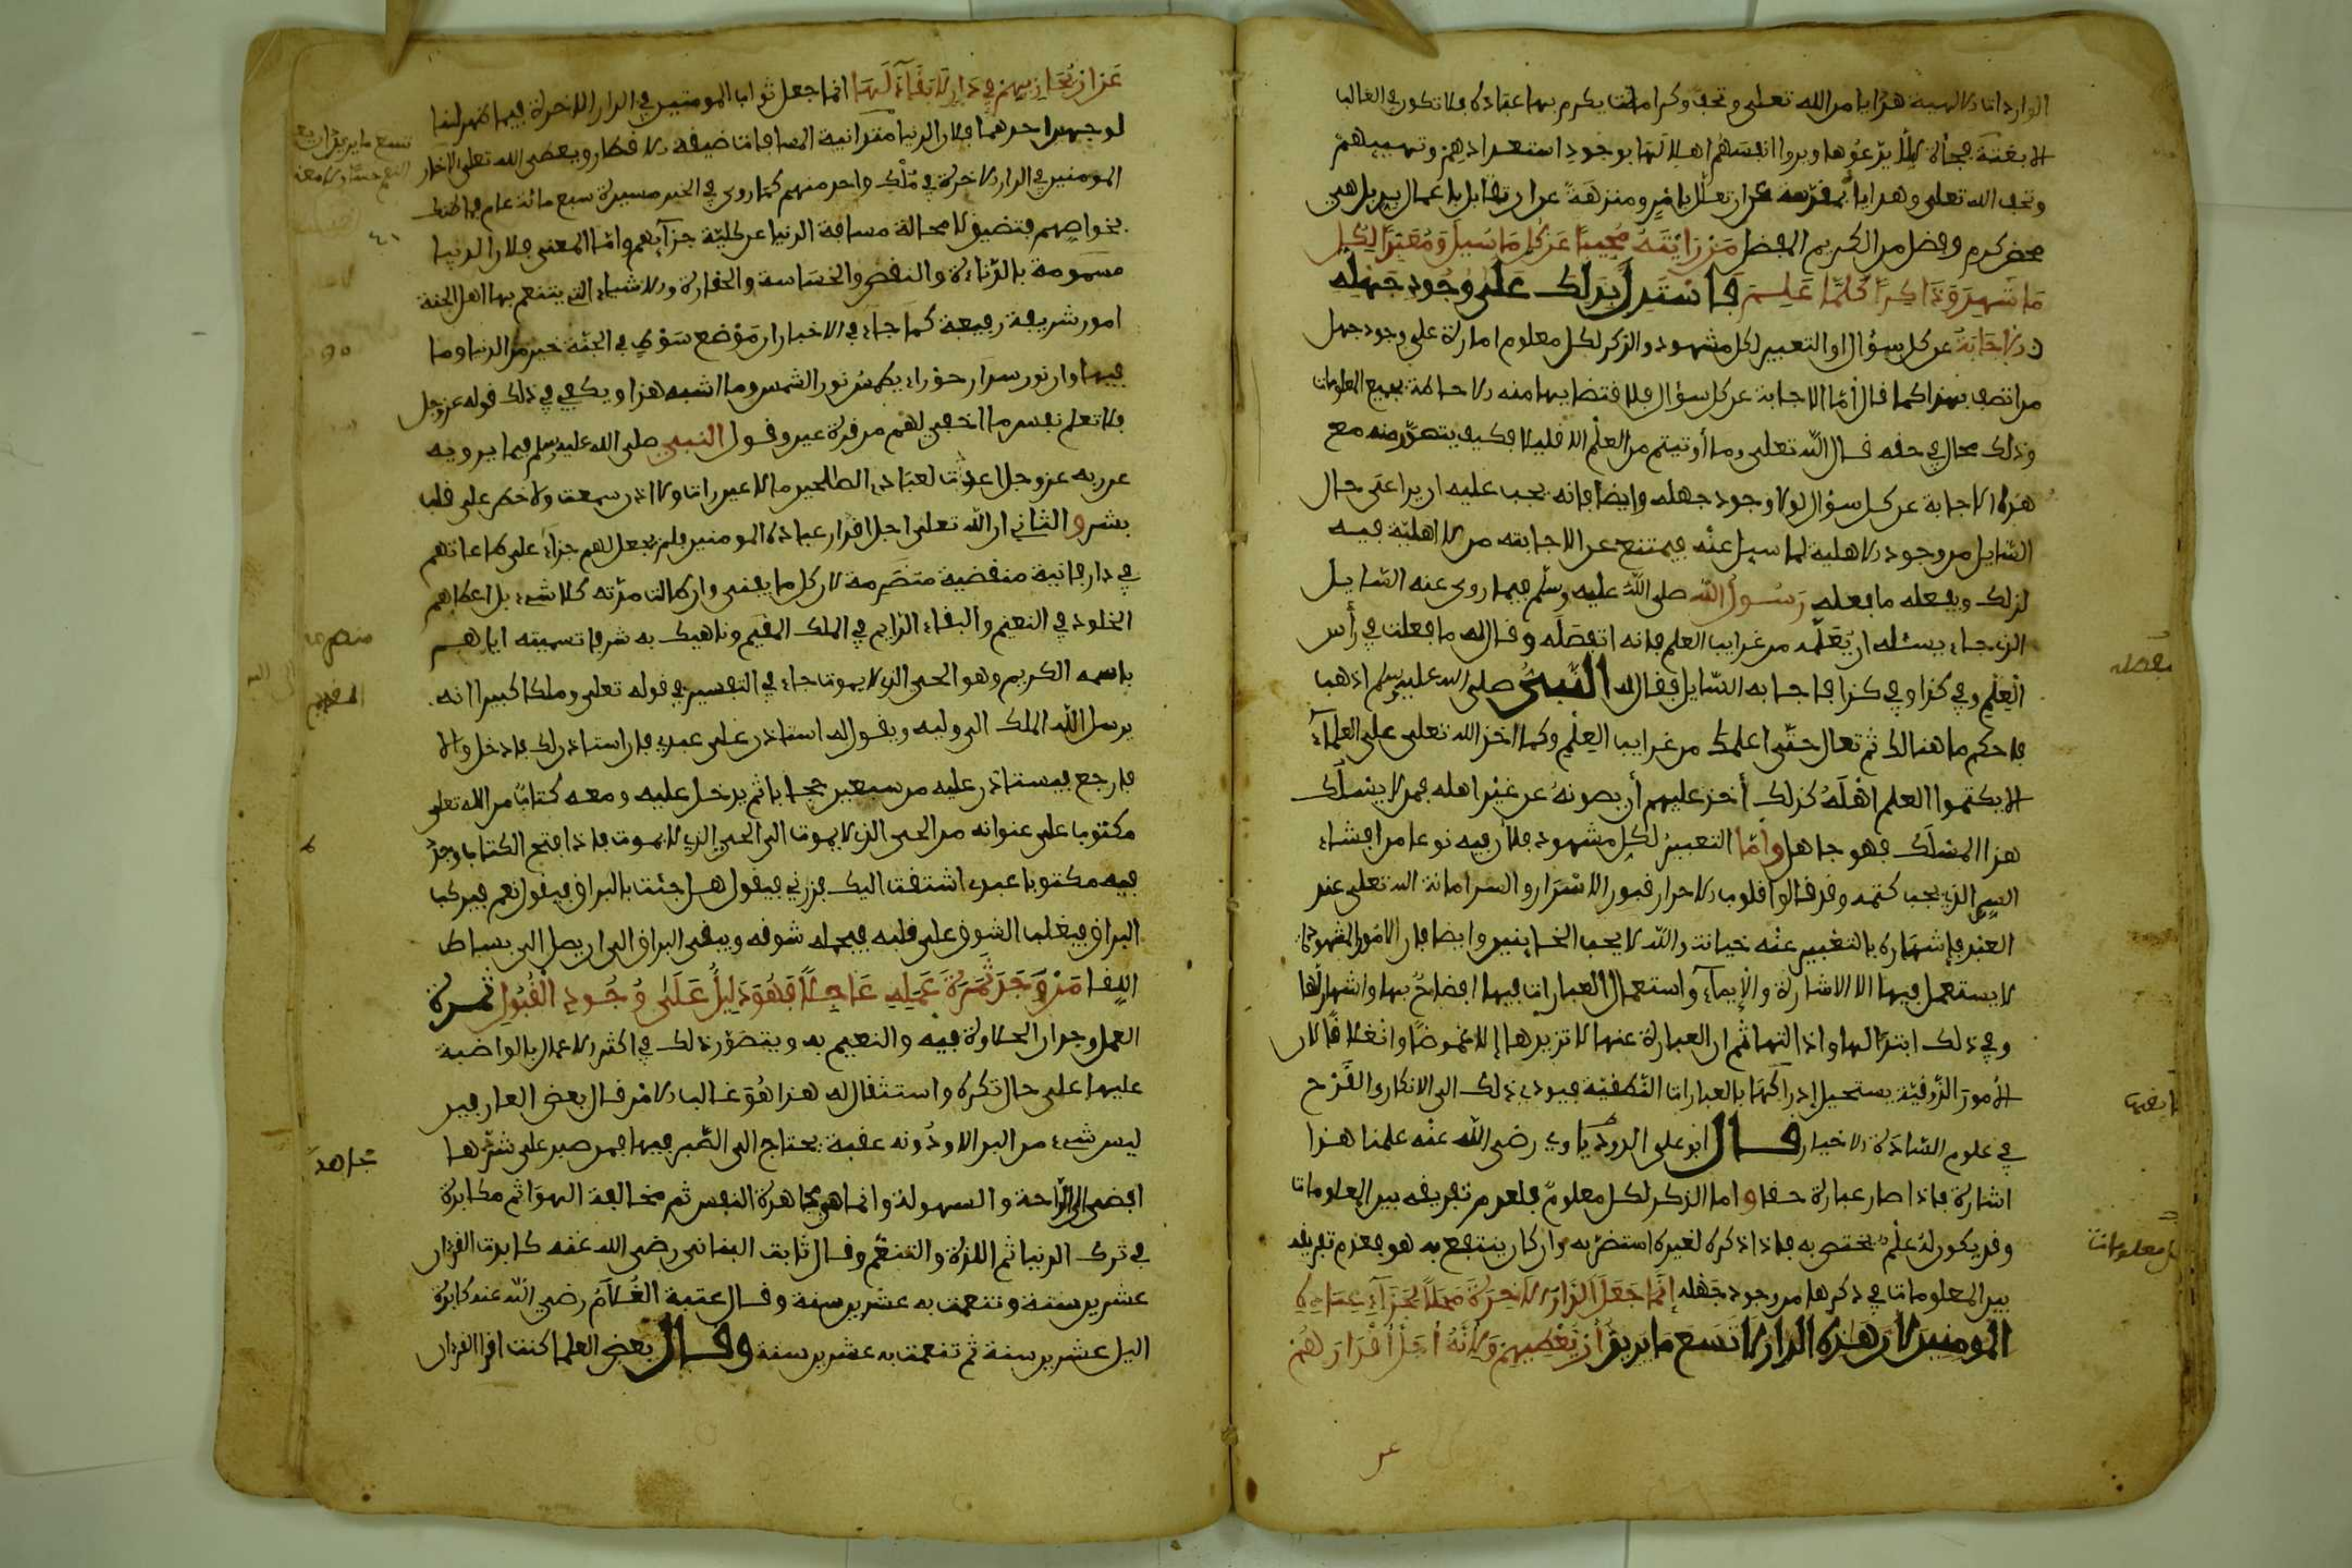 الواردات الالهية هدايا من الله تعلى وتحف وكرامات يكرم بها عباده فلا تكون في الغالب
الا بغتة فجأة ليلا يدعوها ويروا انفسهم اهلا لها بوجود استعدادهم وتهييهم
وتحف الله تعلى وهداياه مقدسة عن ان تعلل بامر ومنزهة عن ان تقابل باعمال بر بل هي
محض كرم وفضل من الكريم المفضل مَن رَأيْتَهُ مُجِيبًا عَن كُلِّ مَا سُيِلَ وَمُعَبِّرًا لِكُلِّ
مَا شَهِدَ وَذَاكِرًا كُلَّمَا عَلِمَ فَاسْتَدِلَّ بِذَلِكَ عَلَى وُجُودِ جَهْلِهِ
الاجابة عن كل سؤال او التعبير لكل مشهود والذكر لكل معلوم امارة على وجود جهل
من اتصف بهذا كما قال أمّا الاجابة عن كل سؤال فلاقتضايها منه الاحاطة بجميع المعلومات
وذلك محال في حقه قال الله تعلى وما أوتيتم من العلم الا قليلا فكيف يتصوّر منه مع
هذه الاجابة عن كل سؤال لولا وجود جهله وايضا فانه يجب عليه ان يراعي حال
السّايل من وجود الاهلية لما سيل عنه فيمتنع عن الاجابته من لا اهلية فيه
لذلك ويفعله ما فعله رسول الله صلى الله عليه وسلم فيما روى عنه السّايل
الذي جاء يسئله ان يُعَلّمه من غرايب العلم فانه استفصله وقال له ما فعلت في رأس
العِلْم وفي كذا وفي كذا فاجابه السّايل فقال له النَّبِيُّ صلى الله عليه وسلم اذهب
فاحكم ما هنالك ثم تعال حتّى اعلمك من غرايب العِلْم وكما اخذ الله تعلى على العلماء
الا يكتموا العلم اهْلَهُ كذلك أخذ عليهم أن يصونهُ عن غير اهله فمن لا يسلك
هذا المسْلك فهو جاهل وامّا التعبير لكل مشهود فلأن فيه نوعا من افشاء
السر الذي يجب كتمه وقد قالوا قلوب الاحرار قبور الاسْرَار والسر امانة الله تعلى عند
العبد فإشهاره بالتعبير عنه خيانة والله لا يحب الخاينين وايضا فان الامور المشهودة
لا يستعمل فيها الا الاشارة والإيماء واستعمال العبارات فيها افضاحٌ بها واشهارلها
وفي ذلك ابتذالها واذالتها ثم ان العبارة عنها لا تزيدها إلا غموضًا وانغلاقًا لان
الأمورَ الذّوقيّة يستحيل إدراكها بالعبارات النّطقيّة فيودي ذلك الى الانكار والقَدْح
في علوم السّادة الاخيار قال ابو علي الروذباري رضي الله عنه علمنا هذا
اشارة فاذا صار عبارة خفا واما الذكر لكل معلوم فلعدم تفريقه بين المعلومات
وقد يكون لهُ عِلْم يختص به فاذا ذكره لغيره استضرّ به وان كان ينتفع به هو فعدم تفريقه
بين المعلومات في ذكرها من وجود جهله إنَّمَا جَعَلَ الدَّارَ الاَخِرَةَ مَحَلاًّ لِجَزَآءِ عِبَادِهِ
المومِنِينَ لأنَّ هَذِهِ الدَّارَ لا تَسَعُ مَا يُرِيدُ أنْ يُعْطِيهِمْ وَلأنَّهُ أجَلَّ أقْدَارَهُمْ
يفصله
ايضها
المعلومات
عَن ان يُجَازِيهِمْ فِي دَارٍ لاَ بَقَآءَ لَهَا انما جعل ثواب المومنين في الدار الاخرة فيما ظهر لنا
لوجهين احدهما فلان الدنيا متدانية المسافات ضيقة الاقطار ويعطي الله تعلى لاخا
المومنين في الدار الاخرة في مُلْك واحد منهم كما روي في الخبر مسيرة سبع مائة عام فما ظنك
بخواصهم فتضيق لا محالة مسافة الدنيا عن كليّة جزآيهم وامّا المعنى فلان الدنيا
مسمومة بالدّناءة والنقص والخساسة والحقارة والاشياء التي يتنعم بها اهل الجنة
امور شريفة رفيعة كما جاء في الاخبار ان مَوْضع سَوْط في الجنّة خير من الدنيا وما
فيها وان نور سوار حوْراء يطمس نور الشمس وما اشبه هذا ويكفي في ذلك قوله عزوجل
فلا تعلم نفس ما اخفي لهم من قرة عين وقول النبي صلى الله عليه وسلم فيما يرويه
عن ربه عز وجل اعددت لعبادي الصلحين ما لا عين رات ولا اذن سمعت ولا خطر على قلب
بشر والثاني ان الله تعلى اجل اقدار عباده المومنين فلم يجعل لهم جزاء على طاعاتهم
في دار فانية منقضية متصرمة لان كل ما يفنى وان طالت مدّته كلا شيء بل اعطاهم
الخلود في النعيم والبقاء الدايم في الملك المقيم وناهيك به شرفا تسميته اياهم
باسمه الكريم وهو الحي الذي لا يموت جاء في التفسير في قوله تعلى وملكا كبيرا انه
يرسل الله الملك الى وليه ويقول له استاذن على عبدي فان استاذن لك فادخل والا
فارجع فيستاذن عليه من سبعين حجابا ثم يدخل عليه ومعه كتاب من الله تعلى
مكتوبا على عنوانه من الحي الذي لا يموت الى الحي الذي لا يموت فاذا فتح الكتاب وجد
فيه مكتوبا عبدي اشتقت اليك فزرني فيقول هل جئت بالبراق فيقول نعم فيركب
البراق فيغلب الشوق على قلبه فيحمله شوقه ويبقى البراق الى ان يصل الى بساط
اللقا مَنْ وَجَدَ ثَمَرَةَ عَمَلِهِ عَاجِلاً فَهُوَ دَلِيلٌ عَلَى وُجُودِ الْقَبُولِ ثمرة
العمل وجدان الحلاوة فيه والنعيم به ويتصوّر ذلك في اكثر الاعمال بالمواظبة
عليها على حال تكره واستثقال له هذا هُوَ غالب الامر قال بعض العارفين
ليس شيء من البر الا ودُونه عقبة يحتاج الى الصّبر فيها فمن صبر على شدّتها
افضى الى الرّاحة والسهولة وانما هي مجاهدة النفس ثم مخالفة الهوا ثم مكابدة
في ترك الدنيا ثم اللذة والتنعّم وقال ثابت البناني رضي الله عنه كابدت القرءان
عشرين سنة وتنعمت به عشرين سنة وقال عتبة الغُلاَمُ رضي الله عنه كابدة
اليل عشرين سنة ثم تنعمت به عشرين سنة وقال بعض العلما كنت اقرا القرءان
المقيم
مجاهدة